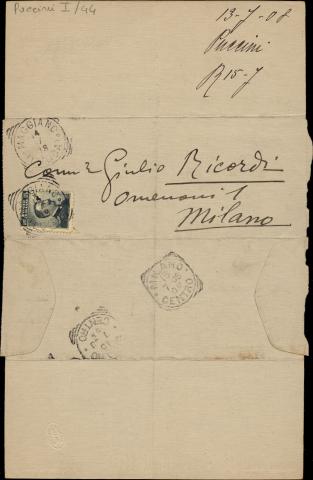 Puccini I/44
13-7-08
Puccini
R 15-7
MAGGIANO
Comm Giulio Ricordi
Omenoni 1
Milano
MILANO
CENTRO